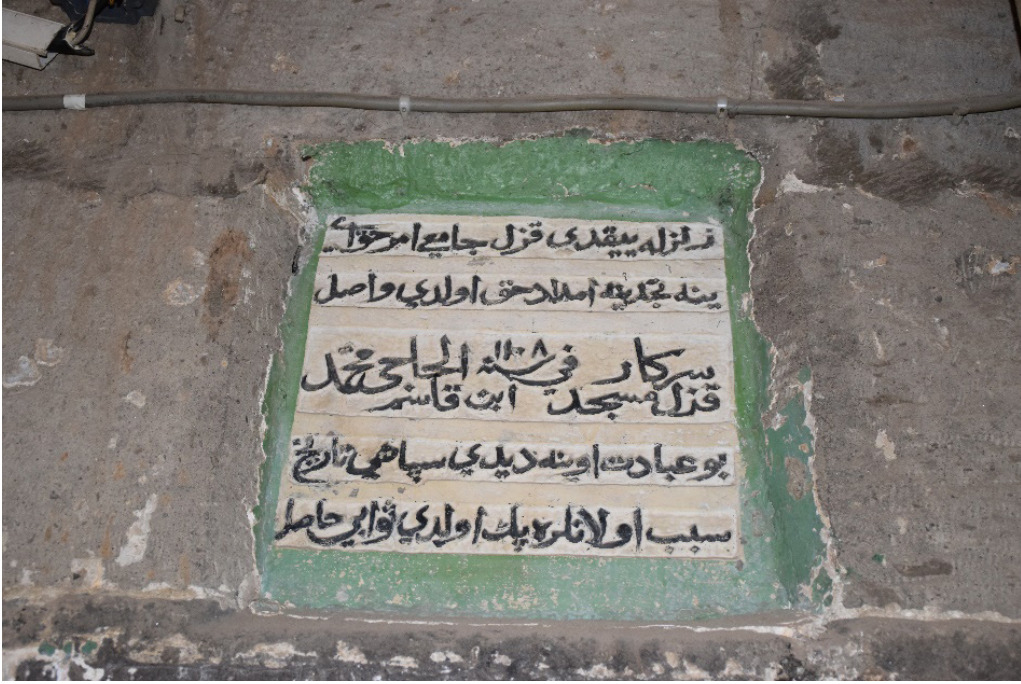 زلزله ييقدى قزل جامعى امر حقدر
ينه تجديدينه امداد حق اولدي واصل
سركار قزل مسجد في سنه ١١٠٨ الحاجى محمد ابن قاسم
بو عبادت اوينه ديدي سپاهي تاريخ
سبب اولانلره پك اولدي ثوابي حاصل